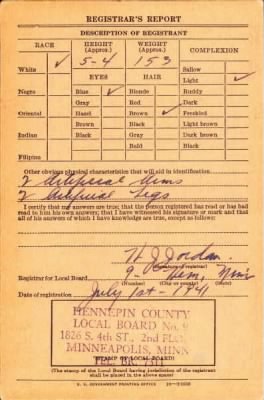 REGISTRAR'S REPORT
DESCRIPTION OF REGISTRANT
RACE HEIGHT (Approx.) WEIGHT (Approx.) COMPLEXION
White ✓ 5-4 153 Sallow
EYES HAIR Light ✓
Negro Blue ✓ Blonde Ruddy
Gray Red Dark
Oriental Hazel Brown ✓ Freckled
Brown Black Light brown
Indian Black Gray Dark brown
Bald Black
Filipino
Other obvious physical characteristics that will aid in identification
2 Artificial Arms
2 Artificial Legs
I certify that my answers are true; that the person registered has read or has had
read to him his own answers; that I have witnessed his signature or mark and that
all of his answers of which I have knowledge are true, except as follows:
H J Jordan
(Signature of registrar)
Registrar for Local Board 9 Hen, Minn
(Number) (City or county) (State)
Date of registration July 1st - 1941
HENNEPIN COUNTY
LOCAL BOARD No. 9
1826 S. 4th ST., 2nd
MINNEAPOLIS, MINN
(STAMP OF LOCAL BOARD)
(The stamp of the Local Board having jurisdiction of the registrant
shall be placed in the above space)
U. S. GOVERNMENT PRINTING OFFICE